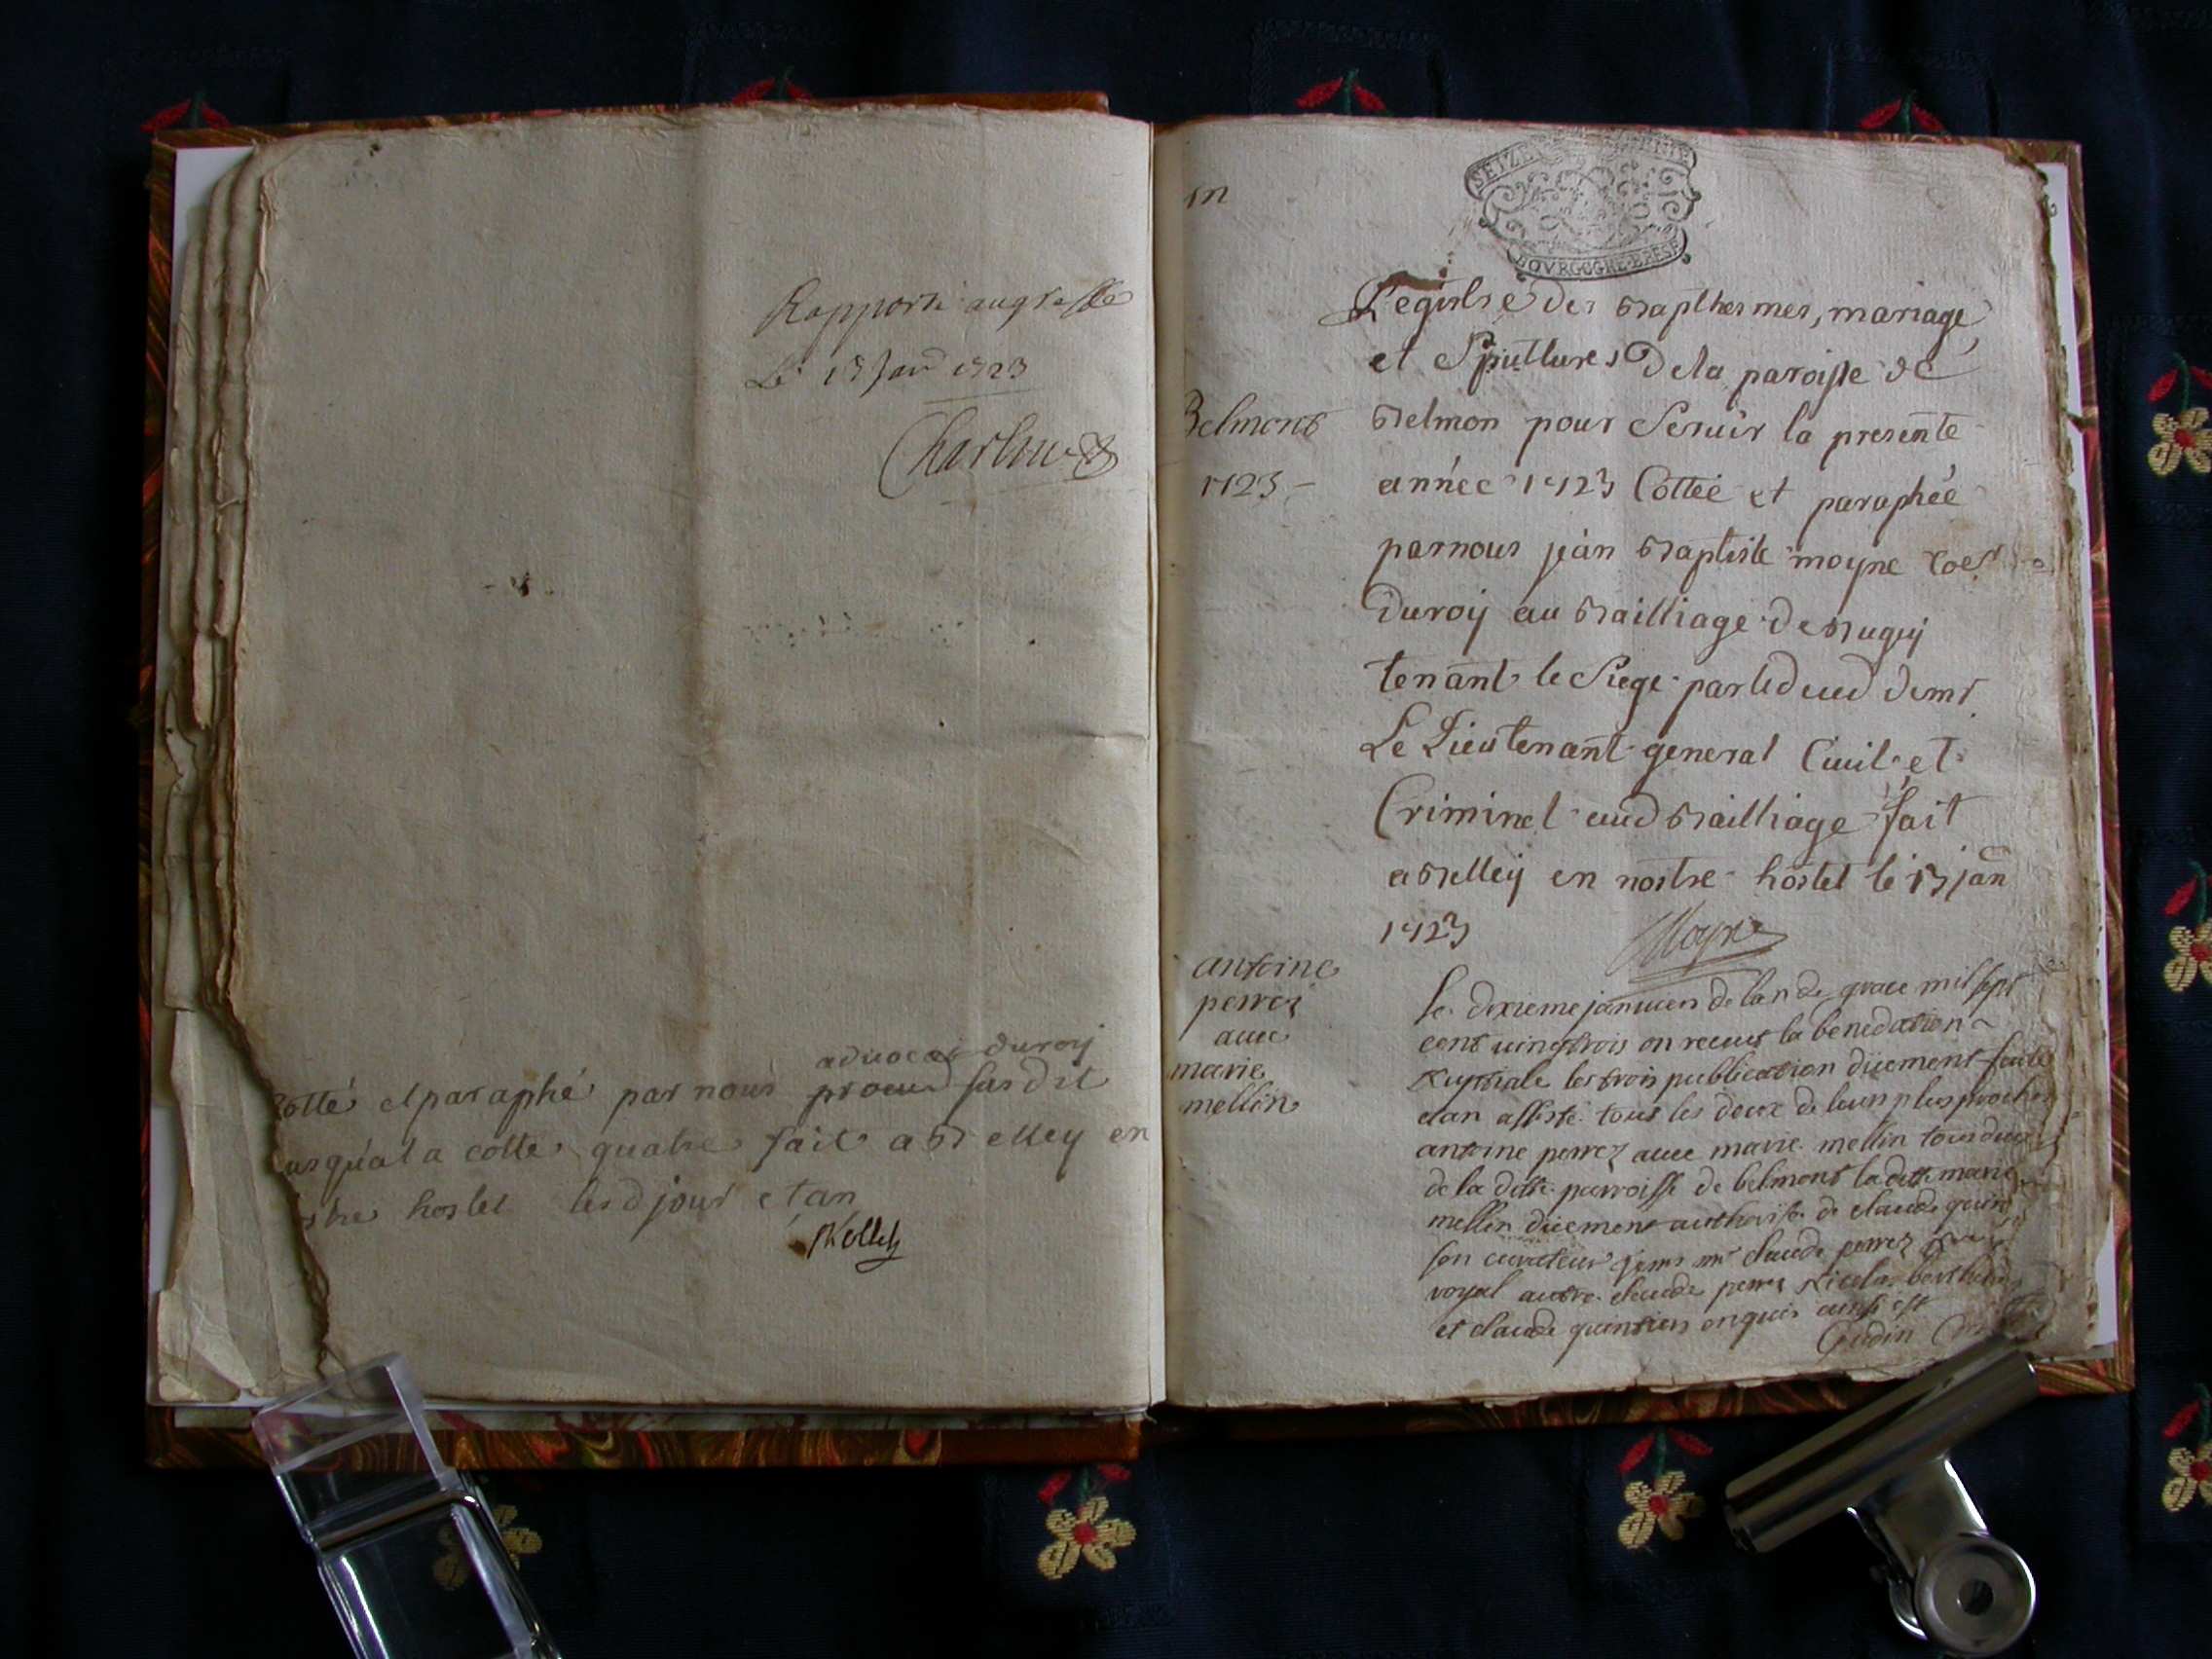 Rapporté au greffe
Le 13 Janr 1723
Cotté et paraphé par nous
advocat du roy
procur susdit
usqu'a la cotte quatre fait a Belley en
hostel lesd jour et an
in
SEIZE
BOVRGOGNE BRESSE
Registre des Bapthesmes, mariage
et Spultures De la paroisse de
Belmont
Belmon pour Servir la presente
1723
année 1723 Cottée et paraphée
par nous jean Baptiste moyne
Du roy au Bailliage de Bugey
tenant le Siege par
Le Lieutenant general Civil et
Criminel aud Bailliage fait
a Belley en nostre hostel le 13 jan
1723
Moyne
antoine
perrez
avec
marie
mellin
le dixieme janvier de lan de grace mil sept
cent vingtrois on receut la benediction
Nuptiale les trois publication düement faite
etan assisté tous les deux de leurs plus proches
antoine perrez avec marie mellin tous deux
de la ditte parroisse de belmont la ditte marie
mellin düement authorise de claude
son curateur mr claude perrez
royal autre claude perrez Nicolas
et claude ainsi est
Gudin